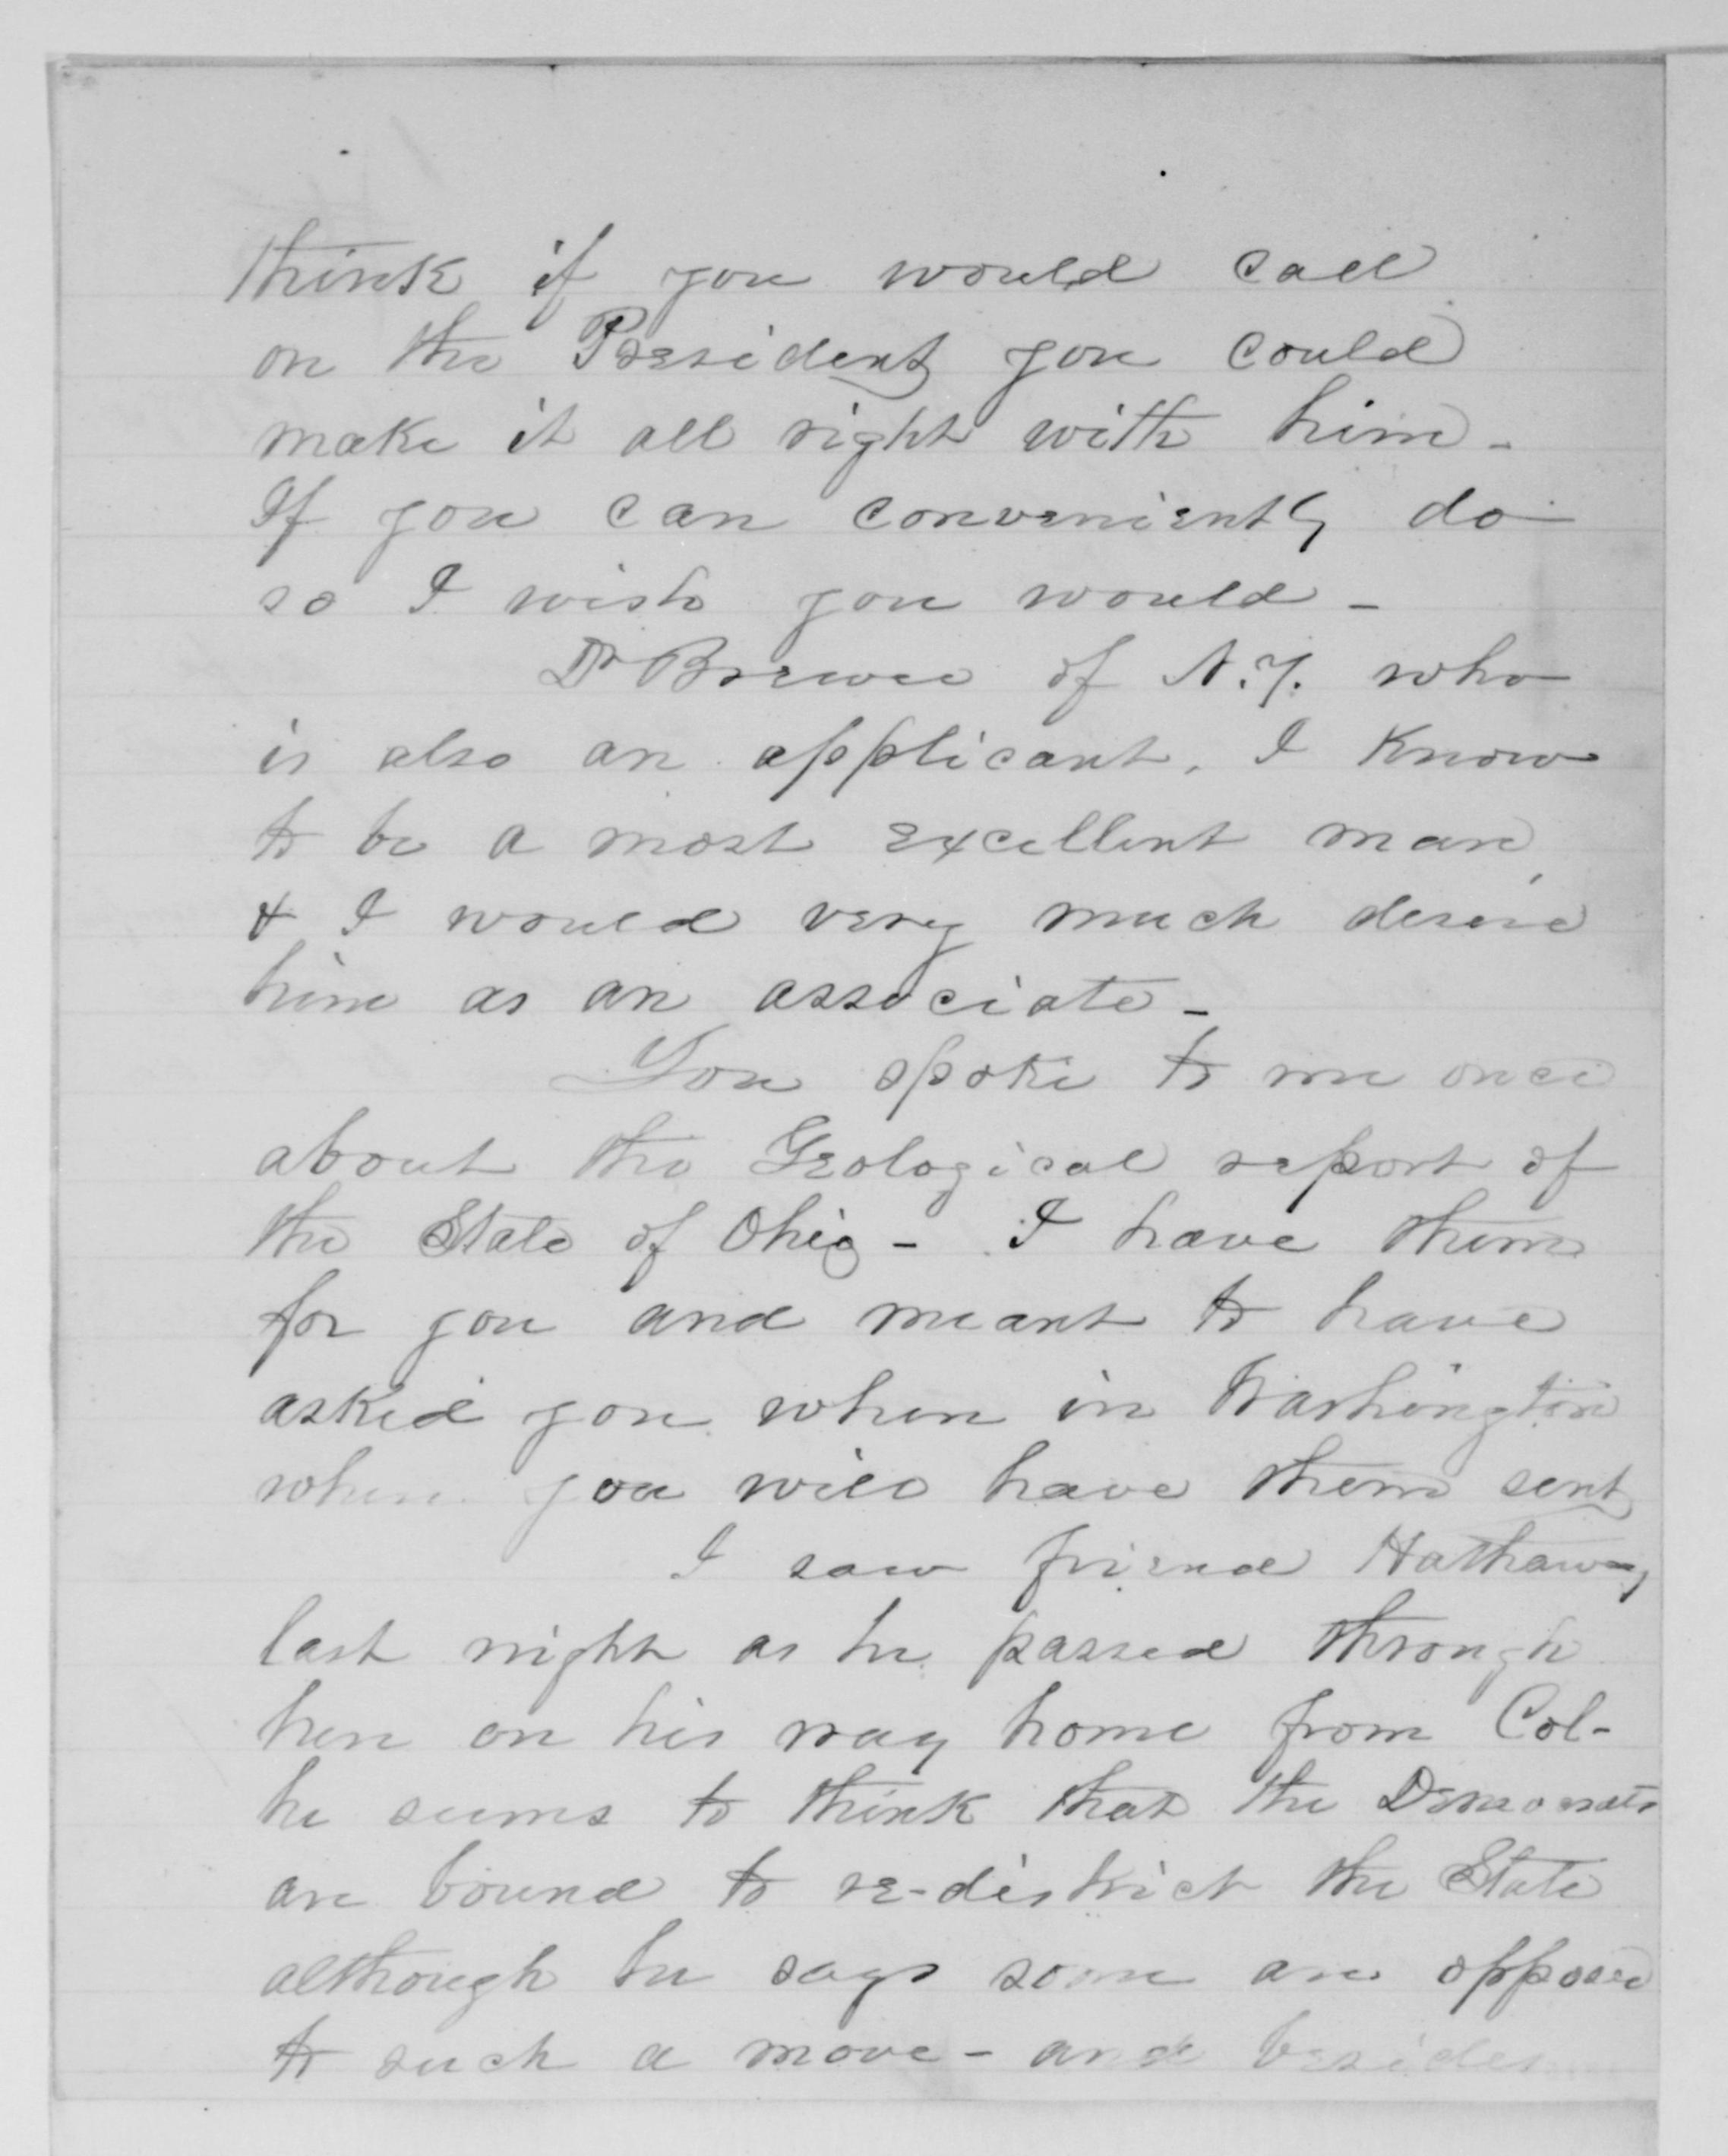 think if you would call
on the President you could
make it all right with him -
If you can conveniently do
so I wish you would -
Dr Brewer of N.Y. who
is also an applicant, I know
to be a most excellent man,
& I would very much desire
him as an associate -
You spoke to me once
about the Geological report of
the State of Ohio - I have them
for you and meant to have
asked you when in Washington
where you will have them sent
I saw friend Hathaway
last night as he passed through
here on his way home from Col-
he seems to think that the Democrats
are bound to re-district the State
although he says some are opposed
to such a move - and besides